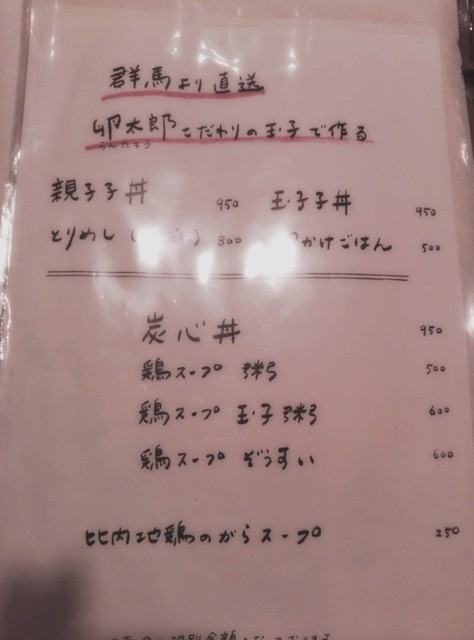 群馬より直送
卵太郎こだわりの玉子で作る
らんたろう
親子丼 950 玉子丼 950
とりめし 800 かけごはん 500
炭心丼 950
鶏スープ 粥 500
鶏スープ 玉子粥 600
鶏スープ ぞうすい 600
比内地鶏のがらスープ 250